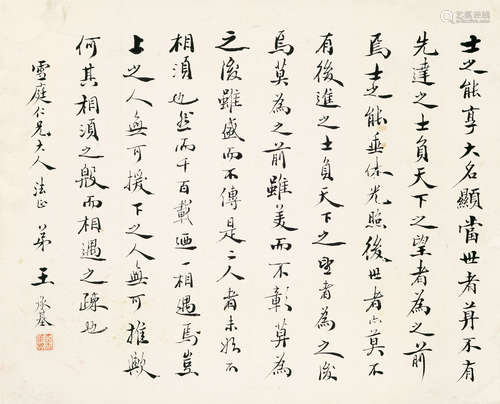 士之能享大名顯當世者莫不有
先達之士負天下之望者為之前
焉士之能垂休光照後世者亦莫不
有後進之士負天下之望者為之後
焉莫為之前雖美而不彰莫為
之後雖盛而不傳是二人者未始不
相須也然而千百載迺一相遇焉豈
上之人無可援下之人無可推歟
何其相須之殷而相遇之疎也
雪庭仁兄大人法正 弟王